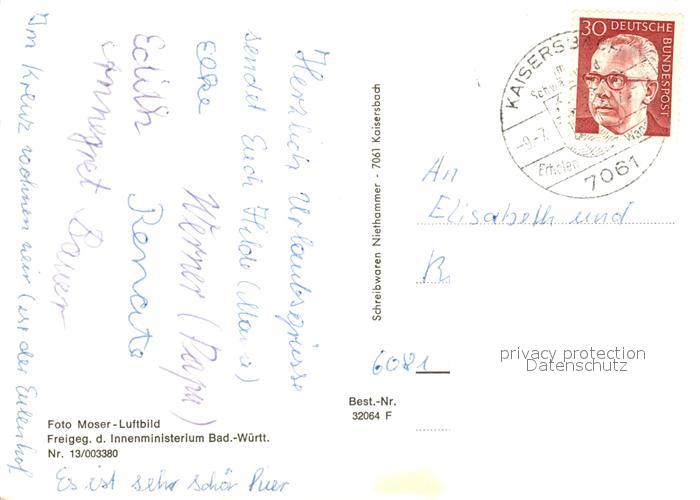 Herzlich Urlaubsgrüsse
sendet Euch Hilde (Mama)
Werner (Papa)
Edith Renate
Annegret Bauer
Im Kreuz wohnen wir
der Eulenhof
Es ist sehr schön hier
Foto Moser-Luftbild
Freigeg. d. Innenministerium Bad.-Württ.
Nr. 13/003380
Schreibwaren Niethammer - 7061 Kaisersbach
Best.-Nr.
32064 F
30 DEUTSCHE
BUNDESPOST
KAISERSBACH
im
Schwä
-9.-7.
Erholen
Wan
7061
An
Elisabeth und
R
6081
privacy protection
Datenschutz